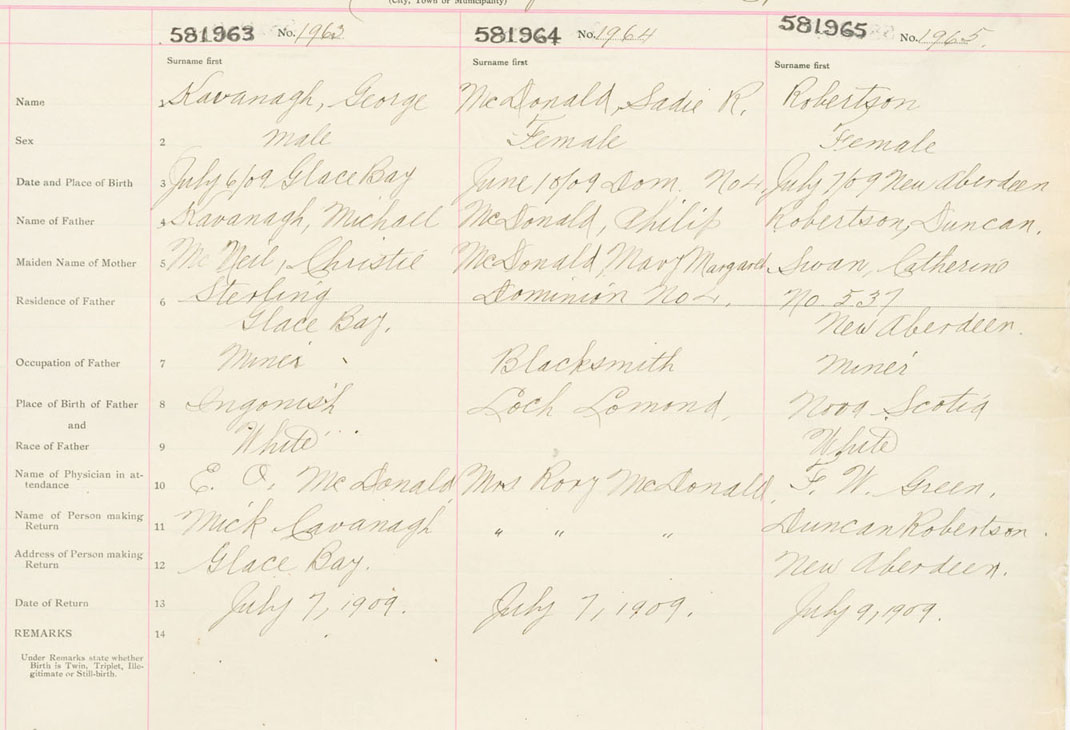 (City, Town or Municipality)
581963 No. 1963 581964 No. 1964 581965 No. 1965.
Surname first Surname first Surname first
Name 1 Kavanagh, George McDonald, Sadie R. Robertson
Sex 2 male Female Female
Date and Place of Birth 3 July 6/09 Glace Bay June 10/09 Dom. No 4, July 7/09 New Aberdeen
Name of Father 4 Kavanagh, Michael McDonald, Philip Robertson, Duncan.
Maiden Name of Mother 5 McNeil, Christie McDonald, Mary Margaret Swan, Catherine
Residence of Father 6 Sterling Dominion No 4. No. 537
Glace Bay. New Aberdeen.
Occupation of Father 7 Miner Blacksmith Miner
Place of Birth of Father 8 Ingonish Loch Lomond, Nova Scotia
and
Race of Father 9 White White
Name of Physician in at- 10 E. O. McDonald Mrs Rory McDonald, F. W. Green.
tendance
Name of Person making 11 Mick Cavanagh " " " Duncan Robertson.
Return
Address of Person making 12 Glace Bay. New Aberdeen.
Return
Date of Return 13 July 7, 1909. July 7, 1909. July 9, 1909.
REMARKS 14
Under Remarks state whether
Birth is Twin, Triplet, Ille-
gitimate or Still-birth.